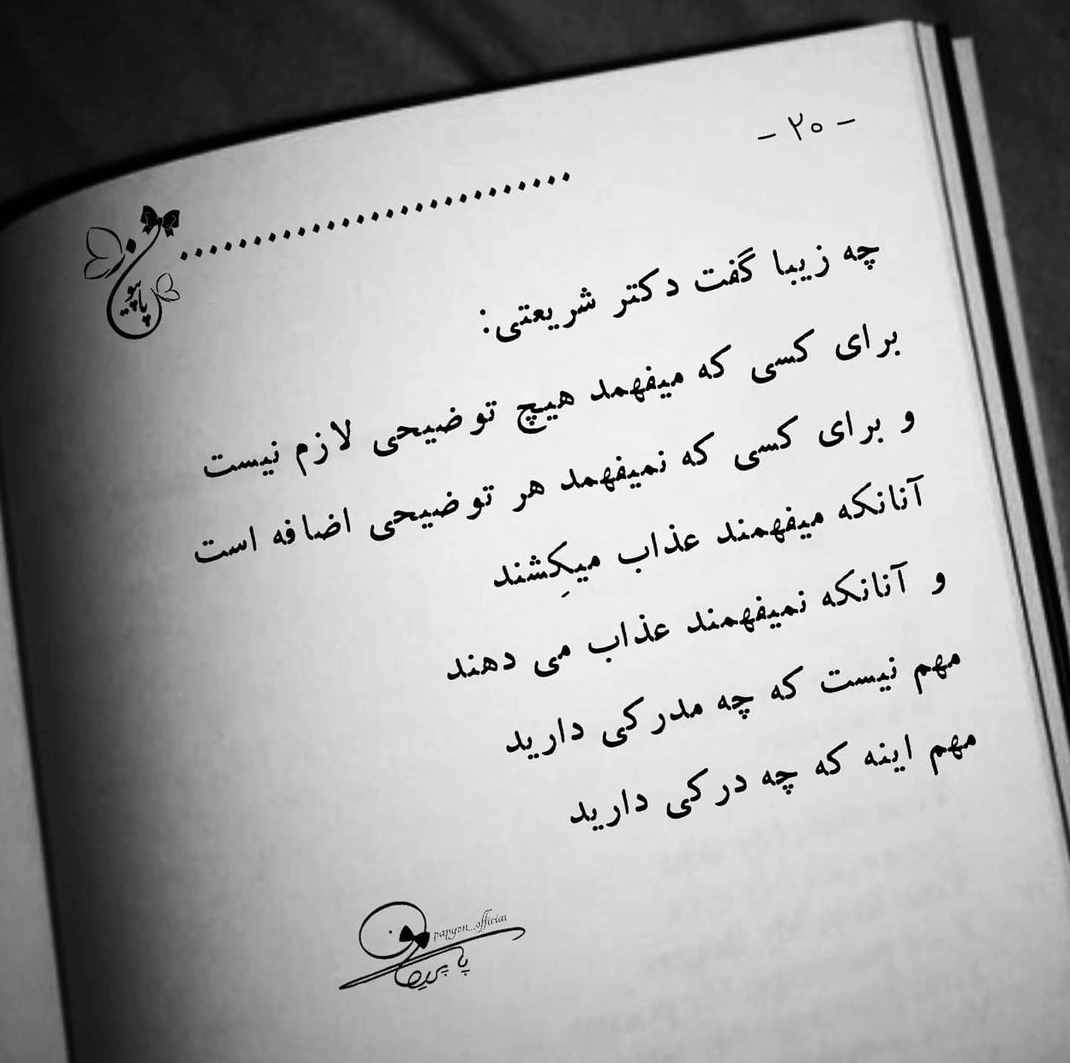 - ۲۰ -
پاپیون
چه زیبا گفت دکتر شریعتی:
برای کسی که میفهمد هیچ توضیحی لازم نیست
و برای کسی که نمیفهمد هر توضیحی اضافه است
آنانکه میفهمند عذاب میکِشند
و آنانکه نمیفهمند عذاب می دهند
مهم نیست که چه مدرکی دارید
مهم اینه که چه درکی دارید
papyon_official
پاپیون